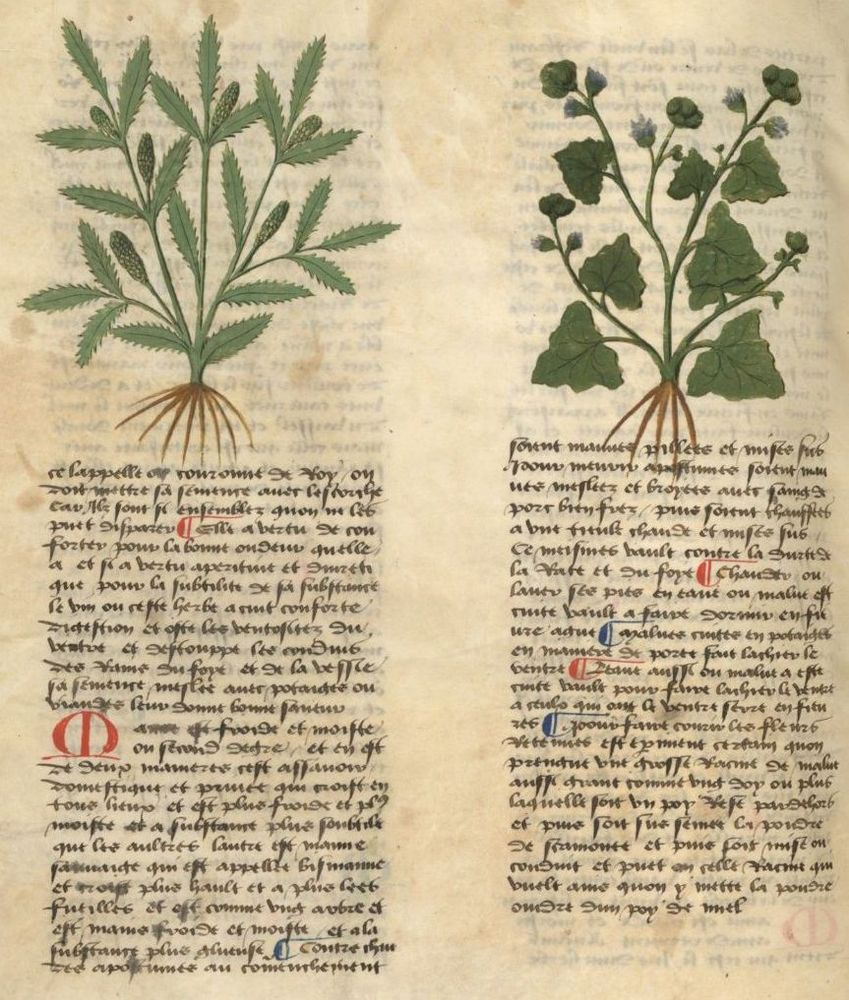 ce lappelle on couronne de Roy / on
doit mettre sa semence avec lescorche
Car Ilz sont si ensemblez quon ne les
puet disparer ¶ Elle a vertu de con
forter pour la bonne oudeur quelle
a et si a vertu aperitive et diureti
que pour la subtilite de sa substance
le vin ou ceste herbe a cuit conforte
digestion et oste les ventositez du
ventre et destouppe les conduis
des Rains du foye et de la vessie
sa semence meslee avec potaiges ou
viandes leur donne bonne saveur
Mauve est froide et moiste
ou second degre / et en est
de deux manieres cest assavoir
domestique et privee qui croist en
tous lieux et est plus froide et plus
moiste et a substance plus soubtile
que les aultres lautre est mauve
sauvaige qui est appellee bismauve
et croist plus hault et a plus lees
fueilles et est comme ung arbre et
est mains froide et moiste et a la
substance plus glueuse ¶ Contre chau
des apostumes au commenchement
soient mauves pillees et mises sus
Pour meurir apostumes soient mau
ves meslees et broyees avec saing de
porc bien frez / puis soient chauffees
a une tieule chaude et mises sus
Ce meismes vault contre la durte de
la Rate et du foye ¶ Chauder ou
laver ses pies en eaue ou malve est
cuite vault a faire dormir en fie
vre ague ¶ Malves cuites en potaiges
en maniere de poree fait lachier le
ventre ¶ Leaue aussi ou malve a este
cuite vault pour faire lachier le ventre
a ceulx qui ont le ventre serre en fiev
res ¶ Pour faire courir les fleurs
Retenues est experiment certain quon
prengne une grosse Racine de malve
aussi grant comme ung doy ou plus
laquelle soit un poy Rese par dehors
et puis soit sus semee la poudre
de scamonee et puis soit mise ou
conduit et puet on celle Racine qui
vuelt ains quon y mette la poudre
oindre dun poy de miel